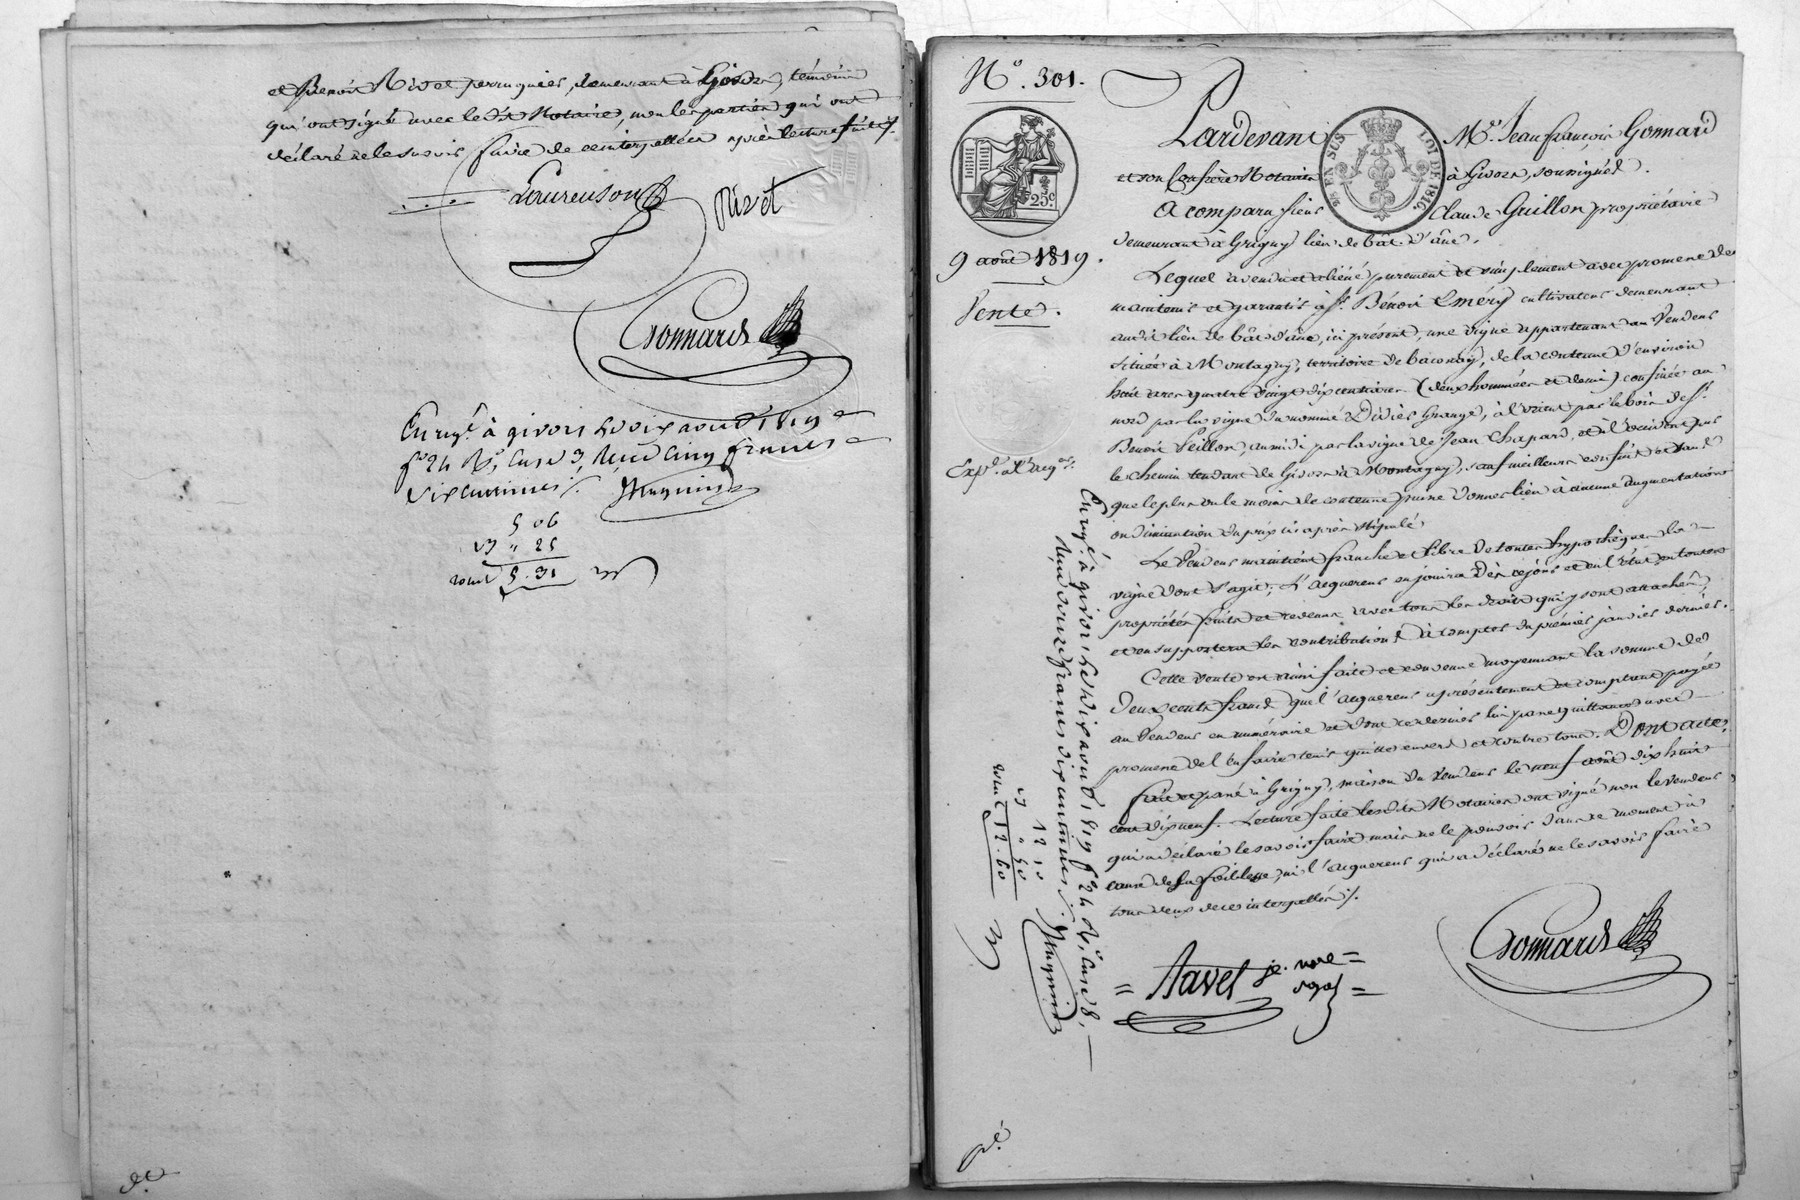 et Benoit Rivet perruquier, demeurant à Givors, témoins
qui ont signé avec led. Notaire, non les parties qui ont
déclaré ne le savoir faire de ce interpellées après lecture faite ./.
Laurenson
Rivet
Gonnard
Enregé à givors le dix aout 1819
fo 24 Ro, Case 3, Reçu Cinq francs
dix centimes ./.
5 06
25
5.31
N.o 301.
25c
9 août 1819.
Vente.
Expéd. à l'acqr.
Pardevant Me. Jean françois Gonnard
EN SUS LOI DE 1816.
et son Confrère Notaires à Givors, soussignés.
A comparu sieur Claude Guillon propriétaire
demeurant à Grigny lieu de bât-d'âne.
Lequel a vendu et aliéné purement et simplement avec promesse de
maintenir et garantir à sr. Benoit Eméry cultivateur demeurant
audit lieu de bât d'âne, ici présent, une vigne appartenant au Vendeur
située à Montagny, territoire de baconay, de la contenue d'environ
huit ares quatre vingt dix centiares (deux hommées et demi) confinée au
nord par la vigne du nommé Didier Grange, à l'orient par le bois de sr.
Benoit Peillon, au midi par la vigne de Jean Chapard, et à l'occident par
le chemin tendant de Givors à Montagny, sauf meilleurs confins et sans
que le plus ou le moins de contenue puisse donner lieu à aucune augmentation
ou diminution du prix ci après stipulé.
Le Vendeur maintient franche et libre de toutes hypothèques la
vigne dont s'agit; L'acquereur en jouira dès ce jour et en l'état, en toutes
propriétés fruits et revenus avec tous les droits qui y sont attachés,
et en supportera les contributions à compter du premier janvier dernier.
Cette vente est ainsi faite et convenue moyennant la somme de
deux cents francs que l'acquereur a présentement et comptant payée
au Vendeur en numéraire et dont ce dernier lui passe quittance avec
promesse de l'en faire tenir quitte envers et contre tous. Dont acte,
fait et passé à Grigny, maison du Vendeur le neuf août dix huit
cent dix neuf. Lecture faite lesdits Notaires ont signé non le vendeur
qui a déclaré le savoir faire mais ne le pouvoir dans ce moment à
cause de sa foiblesse, ni l'acquereur qui a déclaré ne le savoir faire
tous deux de ce interpellés ./.
Favet je. nore
Gonnard
Enregé à givors le dix aout 1819 fo 24 Ro, Case 8,
Reçu douze francs dix centimes ./.
12 10
50
12.60